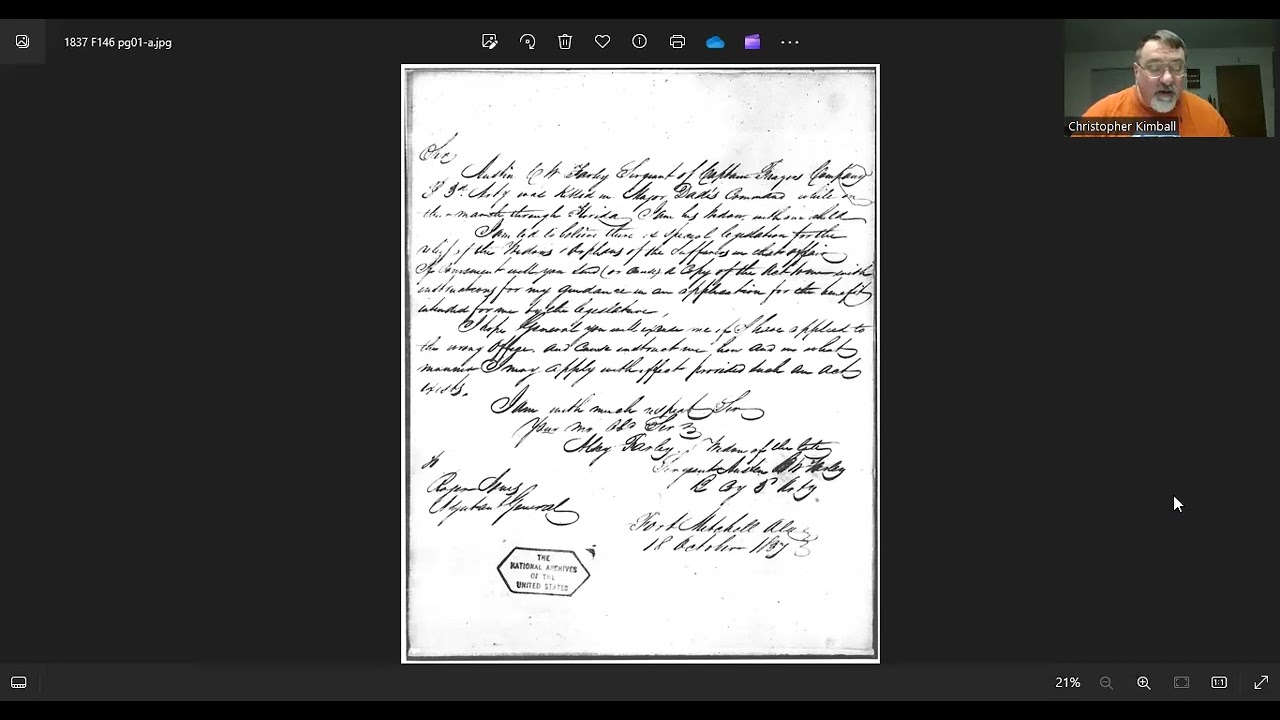 1837 F146 pg01-a.jpg
Christopher Kimball
Sir,
Austin C W Farley Sergeant of Captain Company
3d Arty was Killed in Major Dade's Command while on
their march through Florida, I am his Widow with one child
I am led to believe there is special legislation for the
relief of the Widows & Orphans of the Sufferers in that affair
If Convenient will you send (or cause) a Copy of the Act to me with
instructions for my guidance in an application for the benefit
intended for me by the legislature,
I hope General you will excuse me if I have applied to
the wrong Office, and Cause instruct me how and in what
manner I may apply with effect provided such an Act
exists.
I am with much respect Sir
Your Obt Ser
Mary Farley, Widow of the late
Sergeant Austin C W Farley
Coy 3d Arty
To
Roger Jones
Adjutant General
Fort Mitchell Ala
18 October 1837
THE
NATIONAL ARCHIVES
OF THE
UNITED STATES
21%
1:1